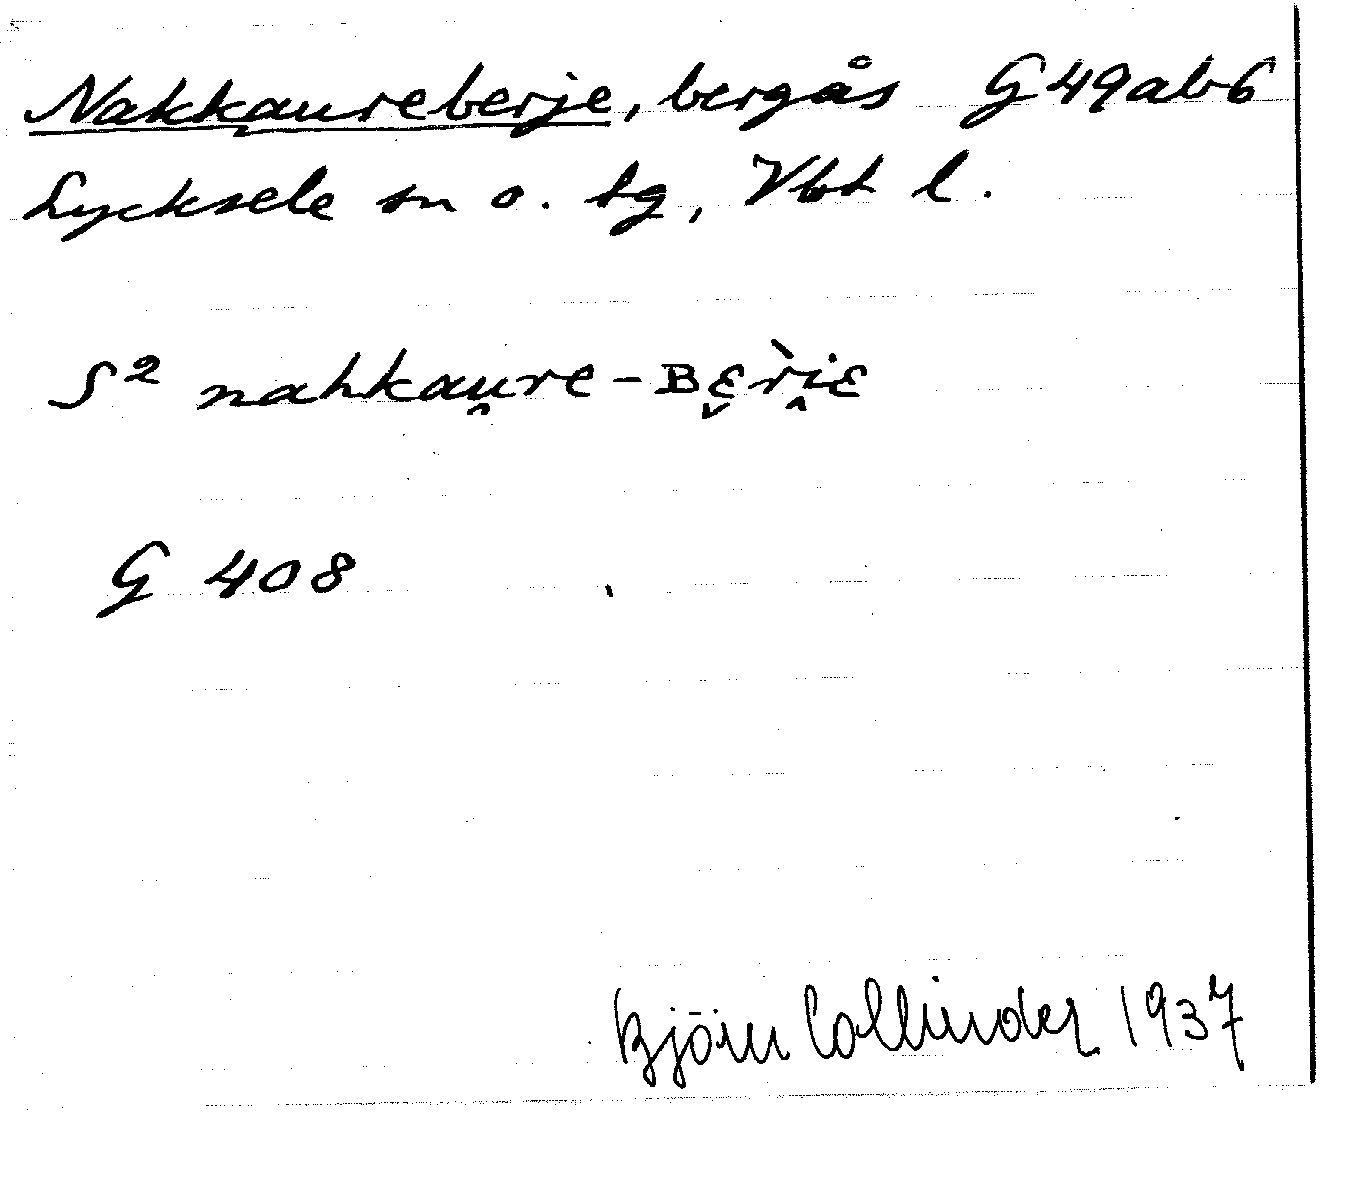 Nakkaureberje, bergås G49ab6
Lycksele sn o. tg, Vbt l.
S² nahkau̯re-ʙɛ̬r̀i̭ɛ
G 408
Björn Collinder 1937